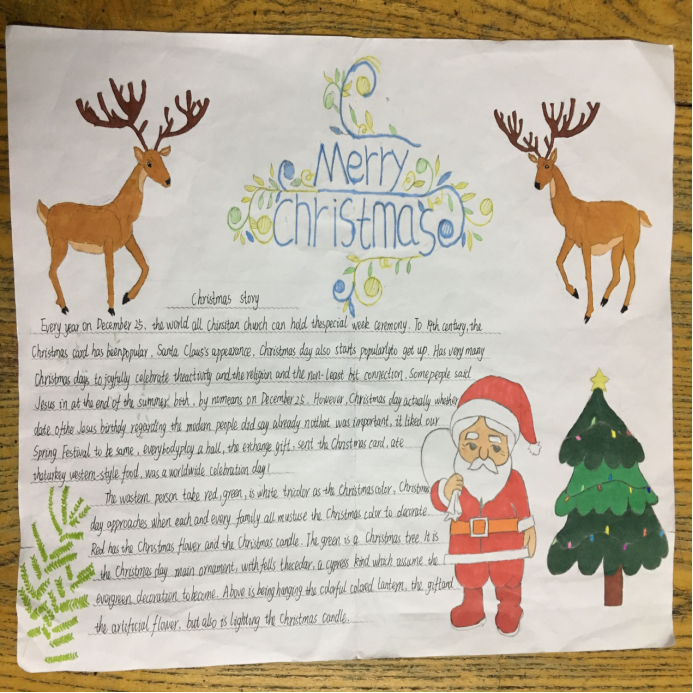 Merry
christmas
Christmas story
Every year on December 25, the world all Chirsitan church can hold thespecial week ceremony. To 19th century, the
Christmas card has beenpopular, Santa Claus's appearance, Christmas day also starts popularlyto get up. Has very many
Christmas days to joyfully celebrate theactivity and the religion and the non-least bit connection. Somepeople said
Jesus in at the end of the summer birth, by nomeans on December 25. However, Christmas day actually whether
date ofthe Jesus birthday regarding the modern people did say already notthat was important, it liked our
Spring Festival to be same, everybodyplay a ball, the exchange gift, sent the Christmas card, ate
thaturkey western-style food, was a worldwide celebration day!
The wastern person take red, green, is white tricolor as the Christmascolor, Christmas
day approaches when each and every family all mustuse the Christmas color to decorate
Red has the Christmas flower and the Christmas candle. The green is a Christmas tree. It is
the Christmas day main ornament, with fells thecedar, a cypress kind which assume the
evergreen decoration to become. Above is being hanging the colorful colored lantern, the giftand
the artificial flower, but also is lighting the Christmas candle.